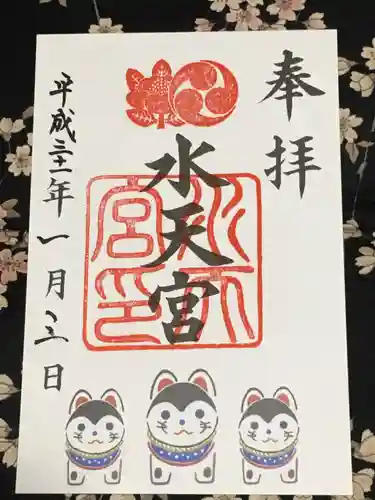 奉拝
水天宮
水天
宮印
平成三十一年一月三日